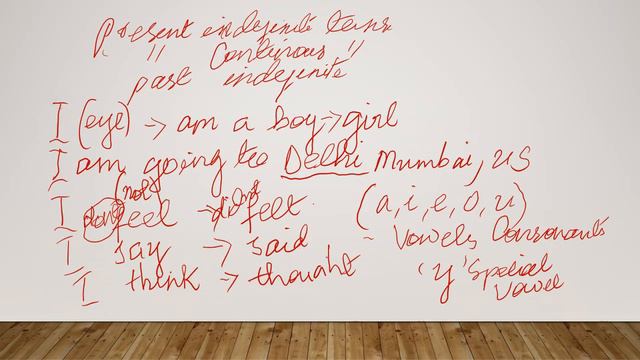 Present indefinite tense
" Continous "
past indefinite
I (eye) → am a boy → girl
I am going to Delhi Mumbai, US
(not
I dont feel → didnt felt.
(a, i, e, o, u)
I say → said
- Vowels Consonants
I think → thought
'y' Special
Vowel